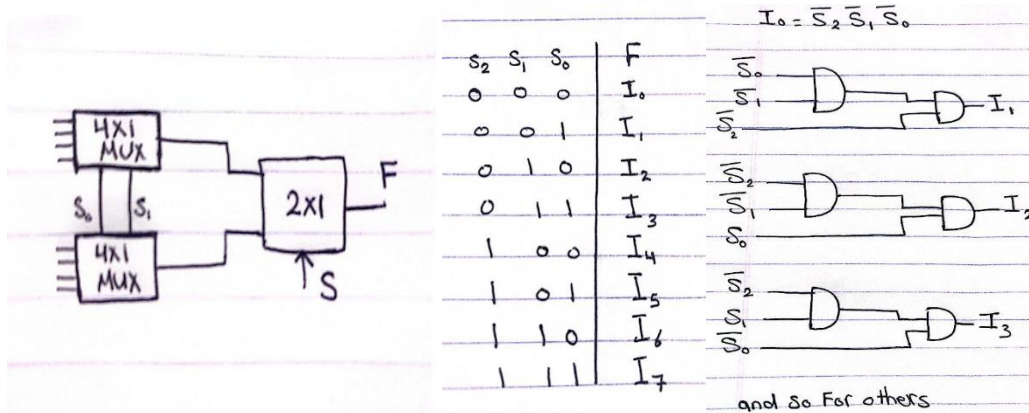 4X1
MUX
S₀ S₁
4X1
MUX
2X1
F
S
S₂ S₁ S₀ F
0 0 0 I₀
0 0 1 I₁
0 1 0 I₂
0 1 1 I₃
1 0 0 I₄
1 0 1 I₅
1 1 0 I₆
1 1 1 I₇
I₀ = S̅₂ S̅₁ S̅₀
S̅₀
S̅₁
S̅₂
I₁
S̅₂
S̅₁
S₀
I₂
S̅₂
S₁
S̅₀
I₃
and so For others